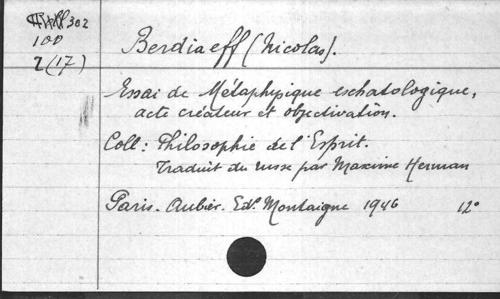 302
100
2(17)
Berdiaeff (Nicolas).
Essai de Métaphysique eschatologique,
acte créateur et objectivation.
Coll: Philosophie de l'Esprit.
Traduit du russe par Maxime Herman
Paris. Aubier. Edº Montaigne 1946 12º